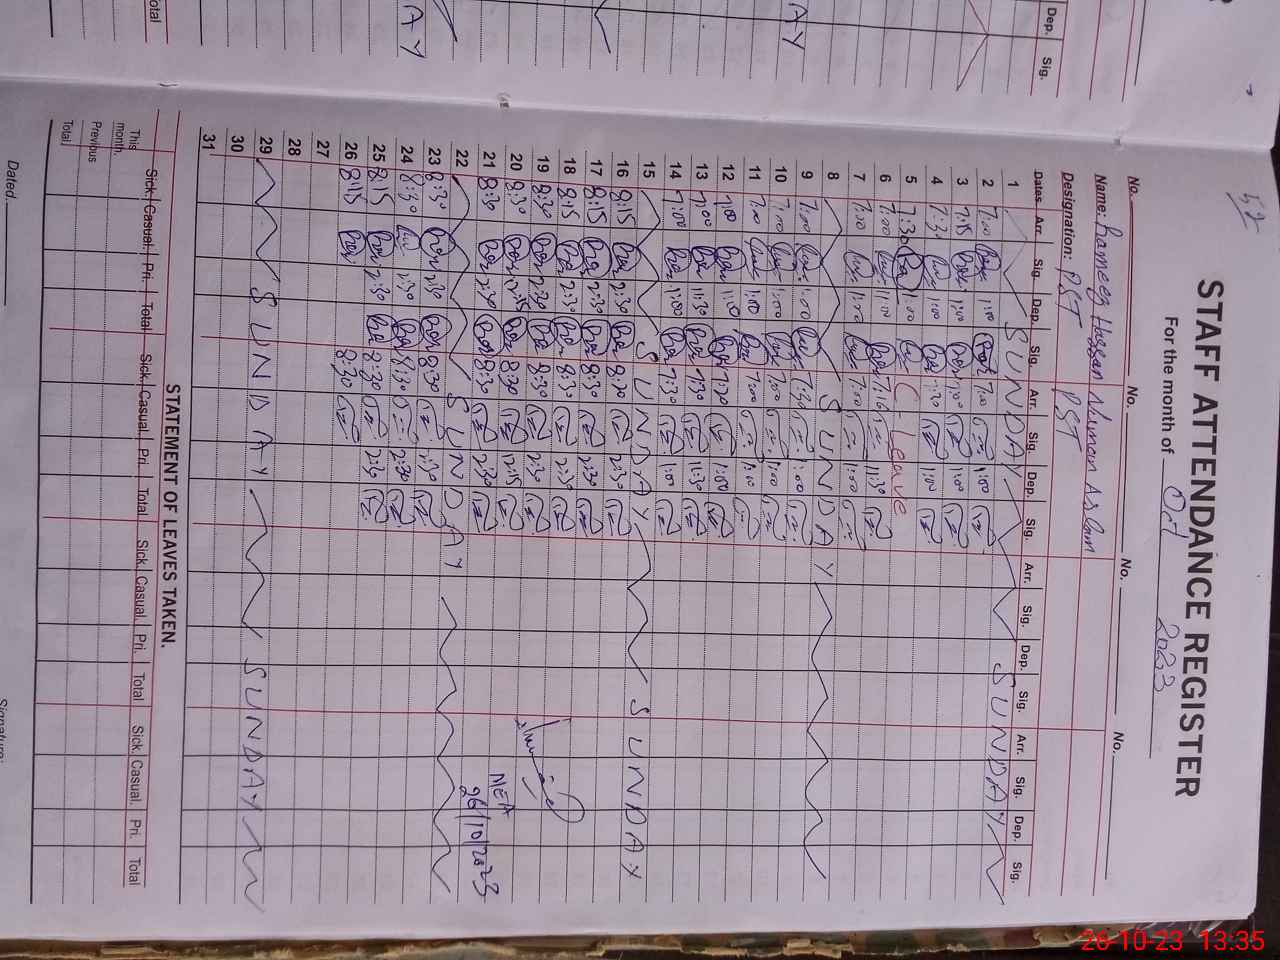 52
STAFF ATTENDANCE REGISTER
For the month of Oct 2023
No. No. No. No.
Name: Rameez Hassan Numan Aslam
Designation: PST PST
Dates Arr. Sig. Dep. Sig. Arr. Sig. Dep. Sig. Arr. Sig. Dep. Sig. Arr. Sig. Dep. Sig.
1 SUNDAY SUNDAY
2 7:00 1:00 7:00 1:00
3 7:15 1:00 7:00 1:00
4 7:30 1:00 7:30 1:00
5 7:30 1:00 C-Leave
6 7:00 11:30 7:16 11:30
7 7:00 1:00 7:00 1:00
8 SUNDAY
9 7:00 1:00 7:30 1:00
10 7:00 1:00 7:00 1:00
11 7:00 1:00 7:00 1:00
12 7:00 1:00 7:20 1:00
13 7:00 11:30 7:30 11:30
14 7:00 1:00 7:30 1:00
15 SUNDAY SUNDAY
16 8:15 2:30 8:20 2:30
17 8:15 2:30 8:30 2:30
18 8:15 2:30 8:30 2:30
19 8:30 2:30 8:30 2:30
20 8:30 12:15 8:30 12:15
21 8:30 2:30 8:30 2:30
MEA
26/10/2023
22 SUNDAY
23 8:30 2:30 8:30 2:30
24 8:30 2:30 8:30 2:30
25 8:15 2:30 8:30 2:30
26 8:15 8:30
27
28
29 SUNDAY SUNDAY
30
31
STATEMENT OF LEAVES TAKEN.
Sick. Casual. Pri. Total Sick. Casual. Pri. Total Sick. Casual. Pri. Total Sick. Casual. Pri. Total
This month.
Previous
Total
Dated.
Signature:
Dep. Sig.
AY
AY
Total
26-10-23 13:35